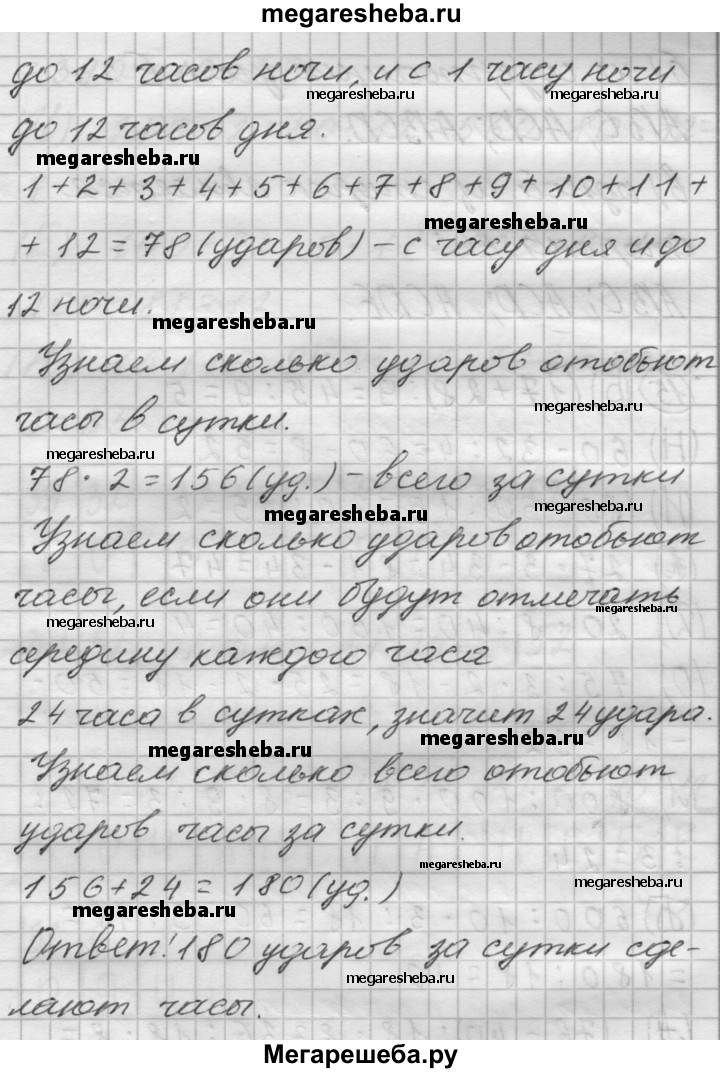 megaresheba.ru
до 12 часов ночи, и с 1 часу ночи
megaresheba.ru megaresheba.ru
до 12 часов дня.
megaresheba.ru
1+2+3+4+5+6+7+8+9+10+11+
megaresheba.ru
+12=78(ударов)-с часу дня и до
12 ночи.
megaresheba.ru
Узнаем сколько ударов отобьют
megaresheba.ru
часы в сутки.
megaresheba.ru
78·2=156(уд.)-всего за сутки
megaresheba.ru megaresheba.ru
Узнаем сколько ударов отобьют
часы, если они будут отмечать
megaresheba.ru megaresheba.ru
середину каждого часа
24 часа в сутках, значит 24 удара.
megaresheba.ru megaresheba.ru
Узнаем сколько всего отобьют
ударов часы за сутки.
megaresheba.ru
156+24=180(уд.)
megaresheba.ru megaresheba.ru
Ответ! 180 ударов за сутки сде-
megaresheba.ru
лают часы.
Мегарешеба.ру